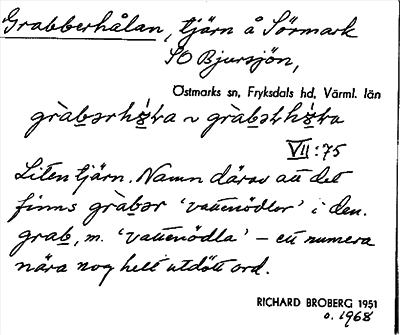 Grabberhålan, tjärn å Sörmark
SO Bjursjön,
Östmarks sn, Fryksdals hd, Värml. län
VII:75
Liten tjärn. Namn därav att det
finns gràb̲ər 'vattenödlor' i den.
grab̲, m. 'vattenödla' – ett numera
nära nog helt utdött ord.
RICHARD BROBERG 1951
o. 1968